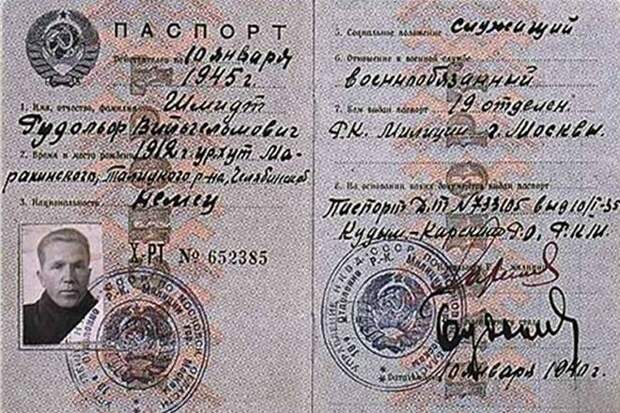 ПАСПОРТ
Действителен по 10 января
1945 г.
1. Имя, отчество, фамилия Шмидт
Рудольф Вильгельмович
2. Время и место рожден. 1912 г. хут. Ма-
ракинского, Талицкого р-на, Челябинск об.
3. Национальность Немец
X-РI № 652385
5. Социальное положение служащий
6. Отношение к военной службе
военнообязанный
7. Кем выдан паспорт 19 отделен.
Р.К. Милиции г. Москвы.
8. На основании каких документов выдан паспорт
Паспорт № 733105 выд 10/II-35
Кудым-Карским Р.О. Р.К.М.
10 января 1940 г.